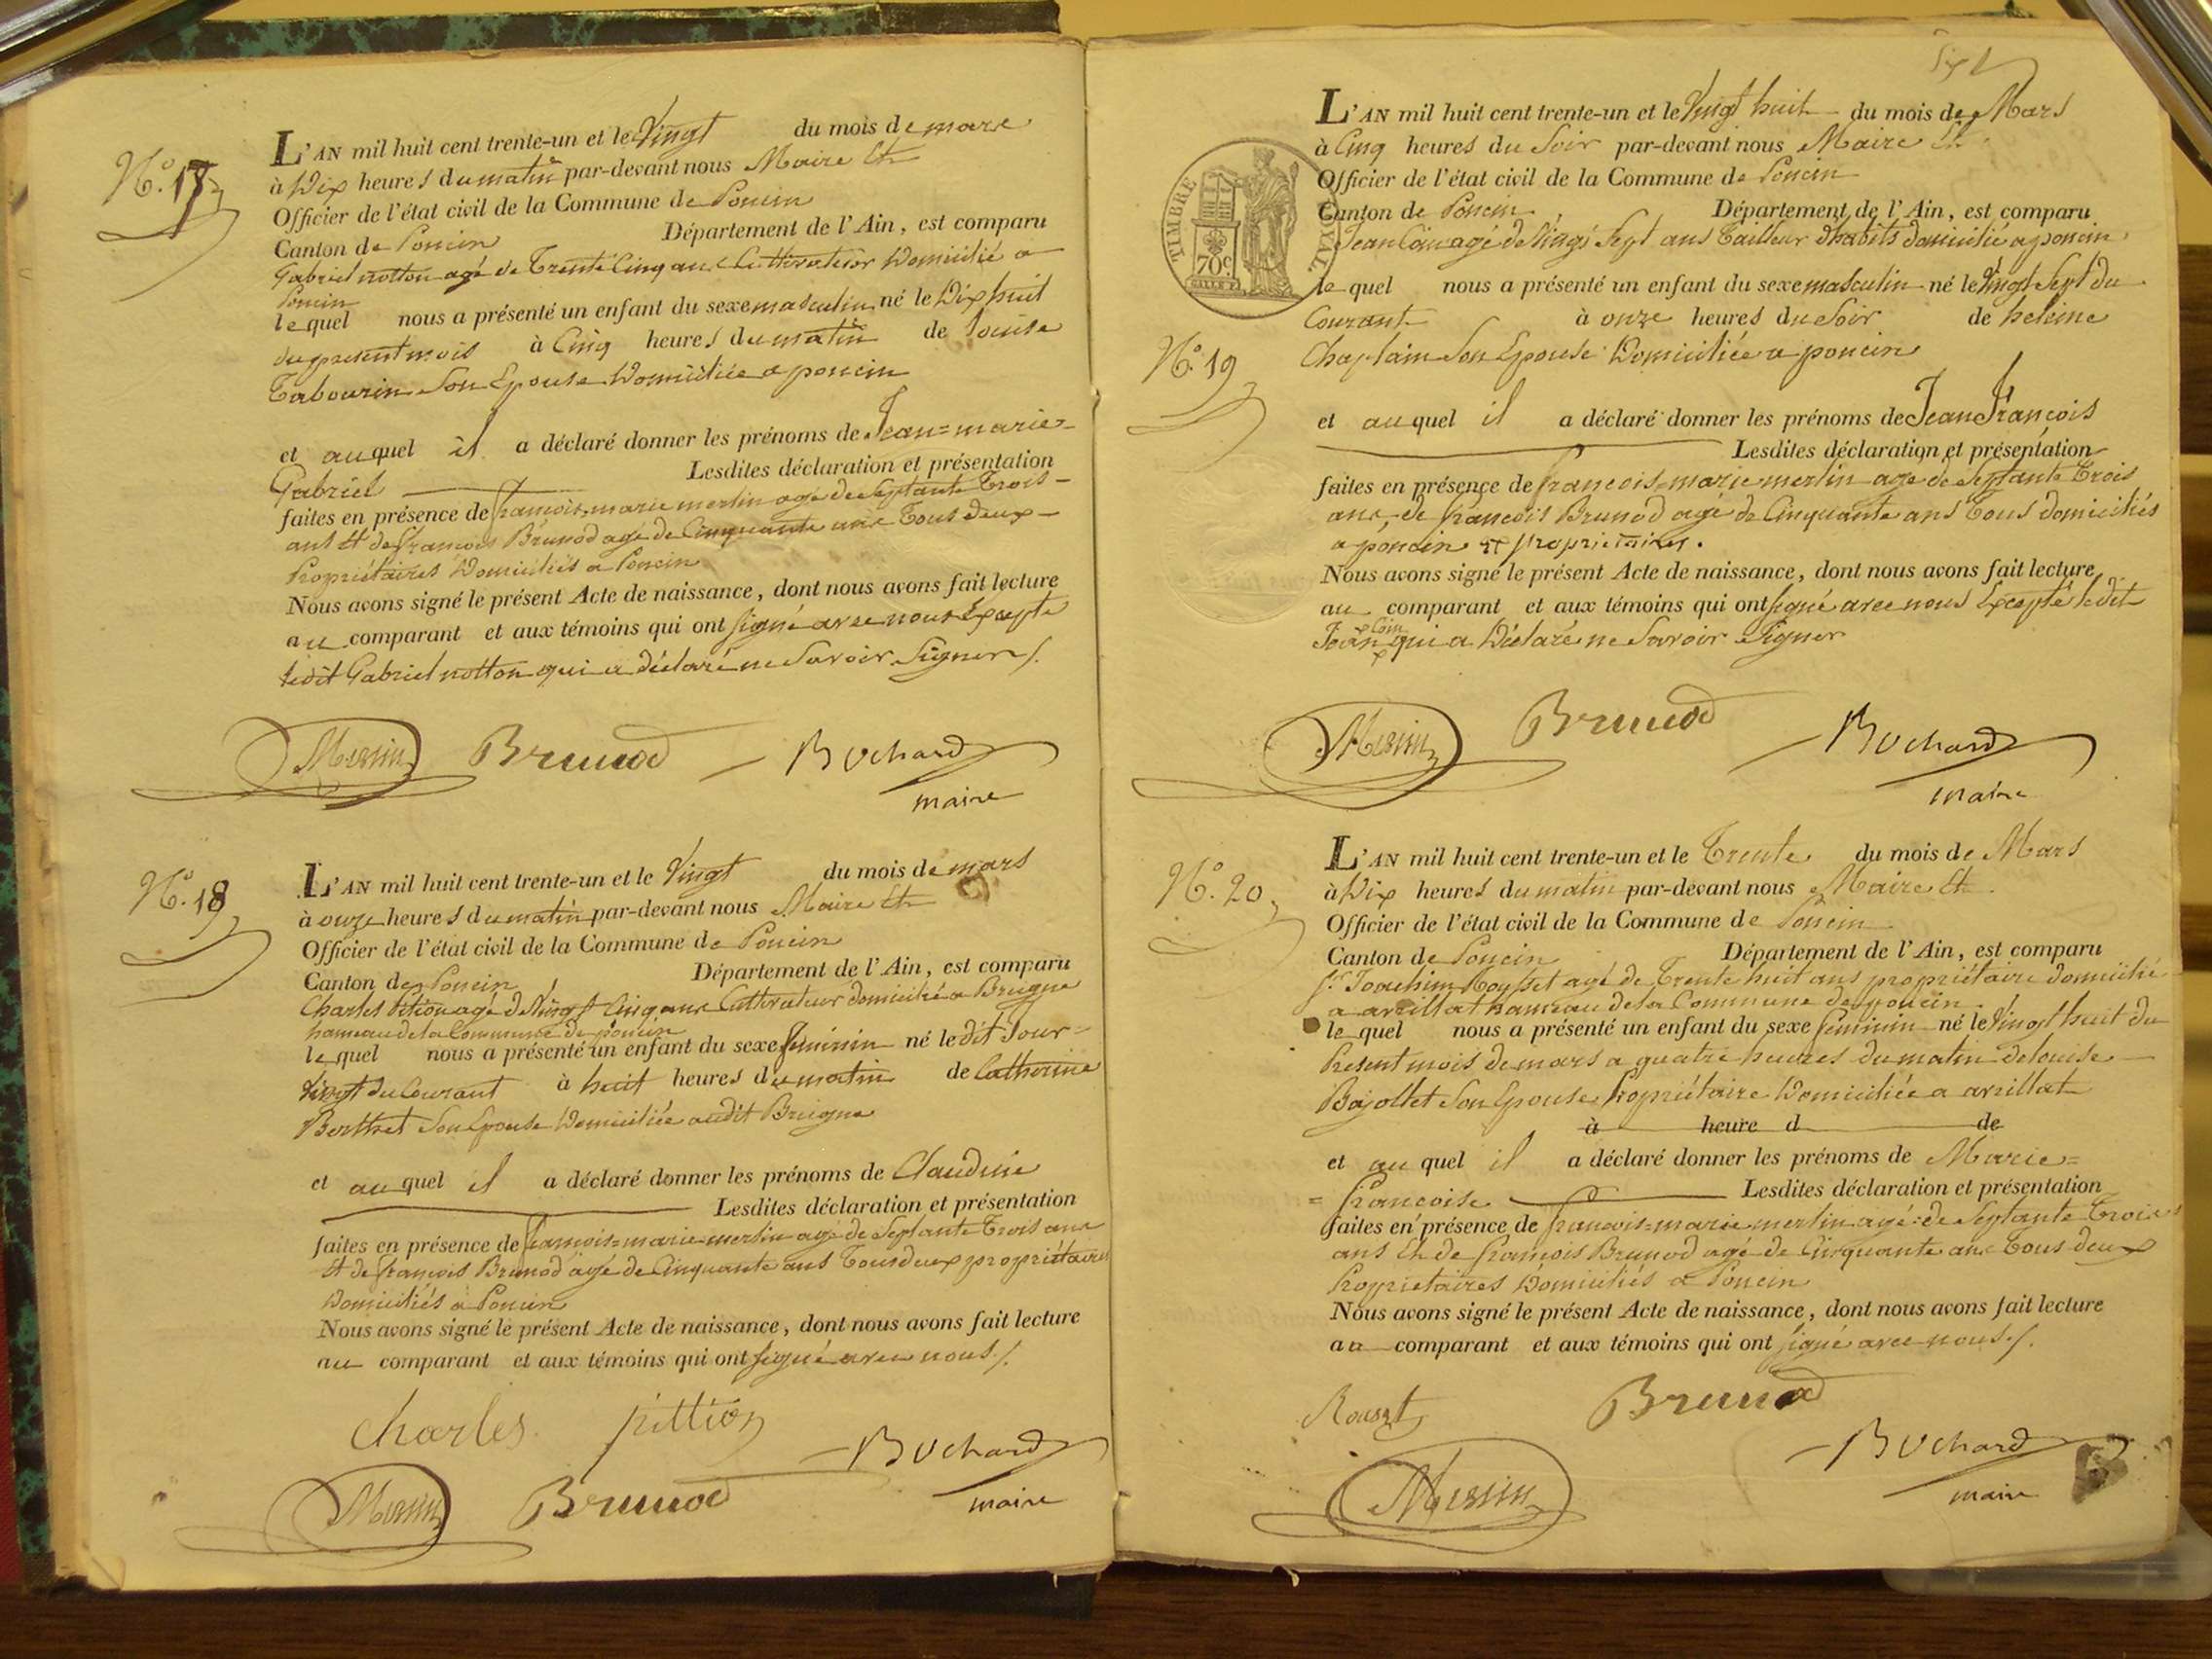 N.° 17
L'AN mil huit cent trente-un et le Vingt du mois de mars
à Dix heures du matin par-devant nous Maire Et
Officier de l'état civil de la Commune de Poncin
Canton de Poncin Département de l'Ain, est comparu
Gabriel notton agé de Trente Cinq ans Cultivateur Domicilié a
Poncin
le quel nous a présenté un enfant du sexe masculin né le Dix huit
du present mois à Cinq heures du matin de Louise
Tabourin Son Epouse Domiciliée a poncin
et au quel il a déclaré donner les prénoms de Jean=marie=
Gabriel Lesdites déclaration et présentation
faites en présence de françois marie merlin agé de Septante Trois
ans Et de françois Brunod agé de Cinquante ans Tous deux
Propriétaires Domiciliés a Poncin
Nous avons signé le présent Acte de naissance, dont nous avons fait lecture
au comparant et aux témoins qui ont signé avec nous Excepté
ledit Gabriel notton qui a déclaré ne Savoir Signer /.
Merlin Brunod Bochard
maire
N.° 18
L'AN mil huit cent trente-un et le Vingt du mois de mars
à onze heures du matin par-devant nous Maire Et
Officier de l'état civil de la Commune de Poncin
Canton de Poncin Département de l'Ain, est comparu
Charles Pition agé de Vingt Cinq ans Cultivateur domicilié a Breigne
hameau de la Commune de poncin
le quel nous a présenté un enfant du sexe feminin né le dit Jour=
Vingt du Courant à huit heures du matin de Catherine
Berthet Son Epouse Domiciliée audit Breigne
et au quel il a déclaré donner les prénoms de Claudine
Lesdites déclaration et présentation
faites en présence de françois=marie merlin agé de Septante Trois ans
Et de françois Brunod agé de Cinquante ans Tous deux propriétaires
Domiciliés a Poncin
Nous avons signé le présent Acte de naissance, dont nous avons fait lecture
au comparant et aux témoins qui ont signé avec nous /.
Charles pittion
Bochard
Merlin Brunod
maire
TIMBRE ROYAL
70c
N.° 19
L'AN mil huit cent trente-un et le Vingt huit du mois de Mars
à Cinq heures du Soir par-devant nous Maire Et
Officier de l'état civil de la Commune de Poncin
Canton de Poncin Département de l'Ain, est comparu
Jean agé de Vingt Sept ans Tailleur d'habits domicilié a poncin
le quel nous a présenté un enfant du sexe masculin né le Vingt Sept du
Courant à onze heures du Soir de heleine
Chaplain Son Epouse Domiciliée a poncin
et au quel il a déclaré donner les prénoms de Jean François
Lesdites déclaration et présentation
faites en présence de françois=marie merlin agé de Septante Trois
ans, de françois Brunod agé de Cinquante ans Tous domiciliés
a poncin et propriétaires.
Nous avons signé le présent Acte de naissance, dont nous avons fait lecture
au comparant et aux témoins qui ont signé avec nous Excepté ledit
Jean qui a Déclaré ne Savoir Signer
Merlin Brunod Bochard
maire
N.° 20
L'AN mil huit cent trente-un et le Trente du mois de Mars
à Dix heures du matin par-devant nous Maire Et
Officier de l'état civil de la Commune de Poncin
Canton de Poncin Département de l'Ain, est comparu
Sr. Joachim Roysset agé de Trente huit ans propriétaire domicilié
a arzillat hameau de la Commune de poncin
le quel nous a présenté un enfant du sexe feminin né le Vingt huit du
Present mois de mars a quatre heures du matin de louise
Bajollet Son Epouse Propriétaire Domiciliée a arzillat
à heure d de
et au quel il a déclaré donner les prénoms de Marie=
=françoise Lesdites déclaration et présentation
faites en présence de francois=marie merlin agé de Septante Trois
ans Et de françois Brunod agé de Cinquante ans Tous deux
Proprietaires Domiciliés a Poncin
Nous avons signé le présent Acte de naissance, dont nous avons fait lecture
au comparant et aux témoins qui ont signé avec nous /.
Rousset Brunod
Bochard
Merlin
maire